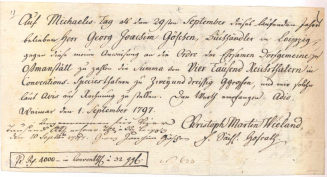 Auf Michaelis Tag als den 29sten September dieses laufenden Jahres
belieben Herr Georg Joachim Göschen, Buchhändler in Leipzig,
gegen diese meine Anweisung an die Ordre der Dorfgemeine zu
Osmanstätt zu zahlen die Summa von Vier Tausend Reichsthalern in
Conventions-Species thalern zu Zwey und dreißig Ggroschen, und mir solche
laut Avis auf Rechnung zu stellen. Den Werth empfangen. Adio.
Weimar den 1. September 1797.
Christoph Martin Wieland
den 18 Sept. 1797. Georg Joachim Göschen
4000 — in Convent. à 32